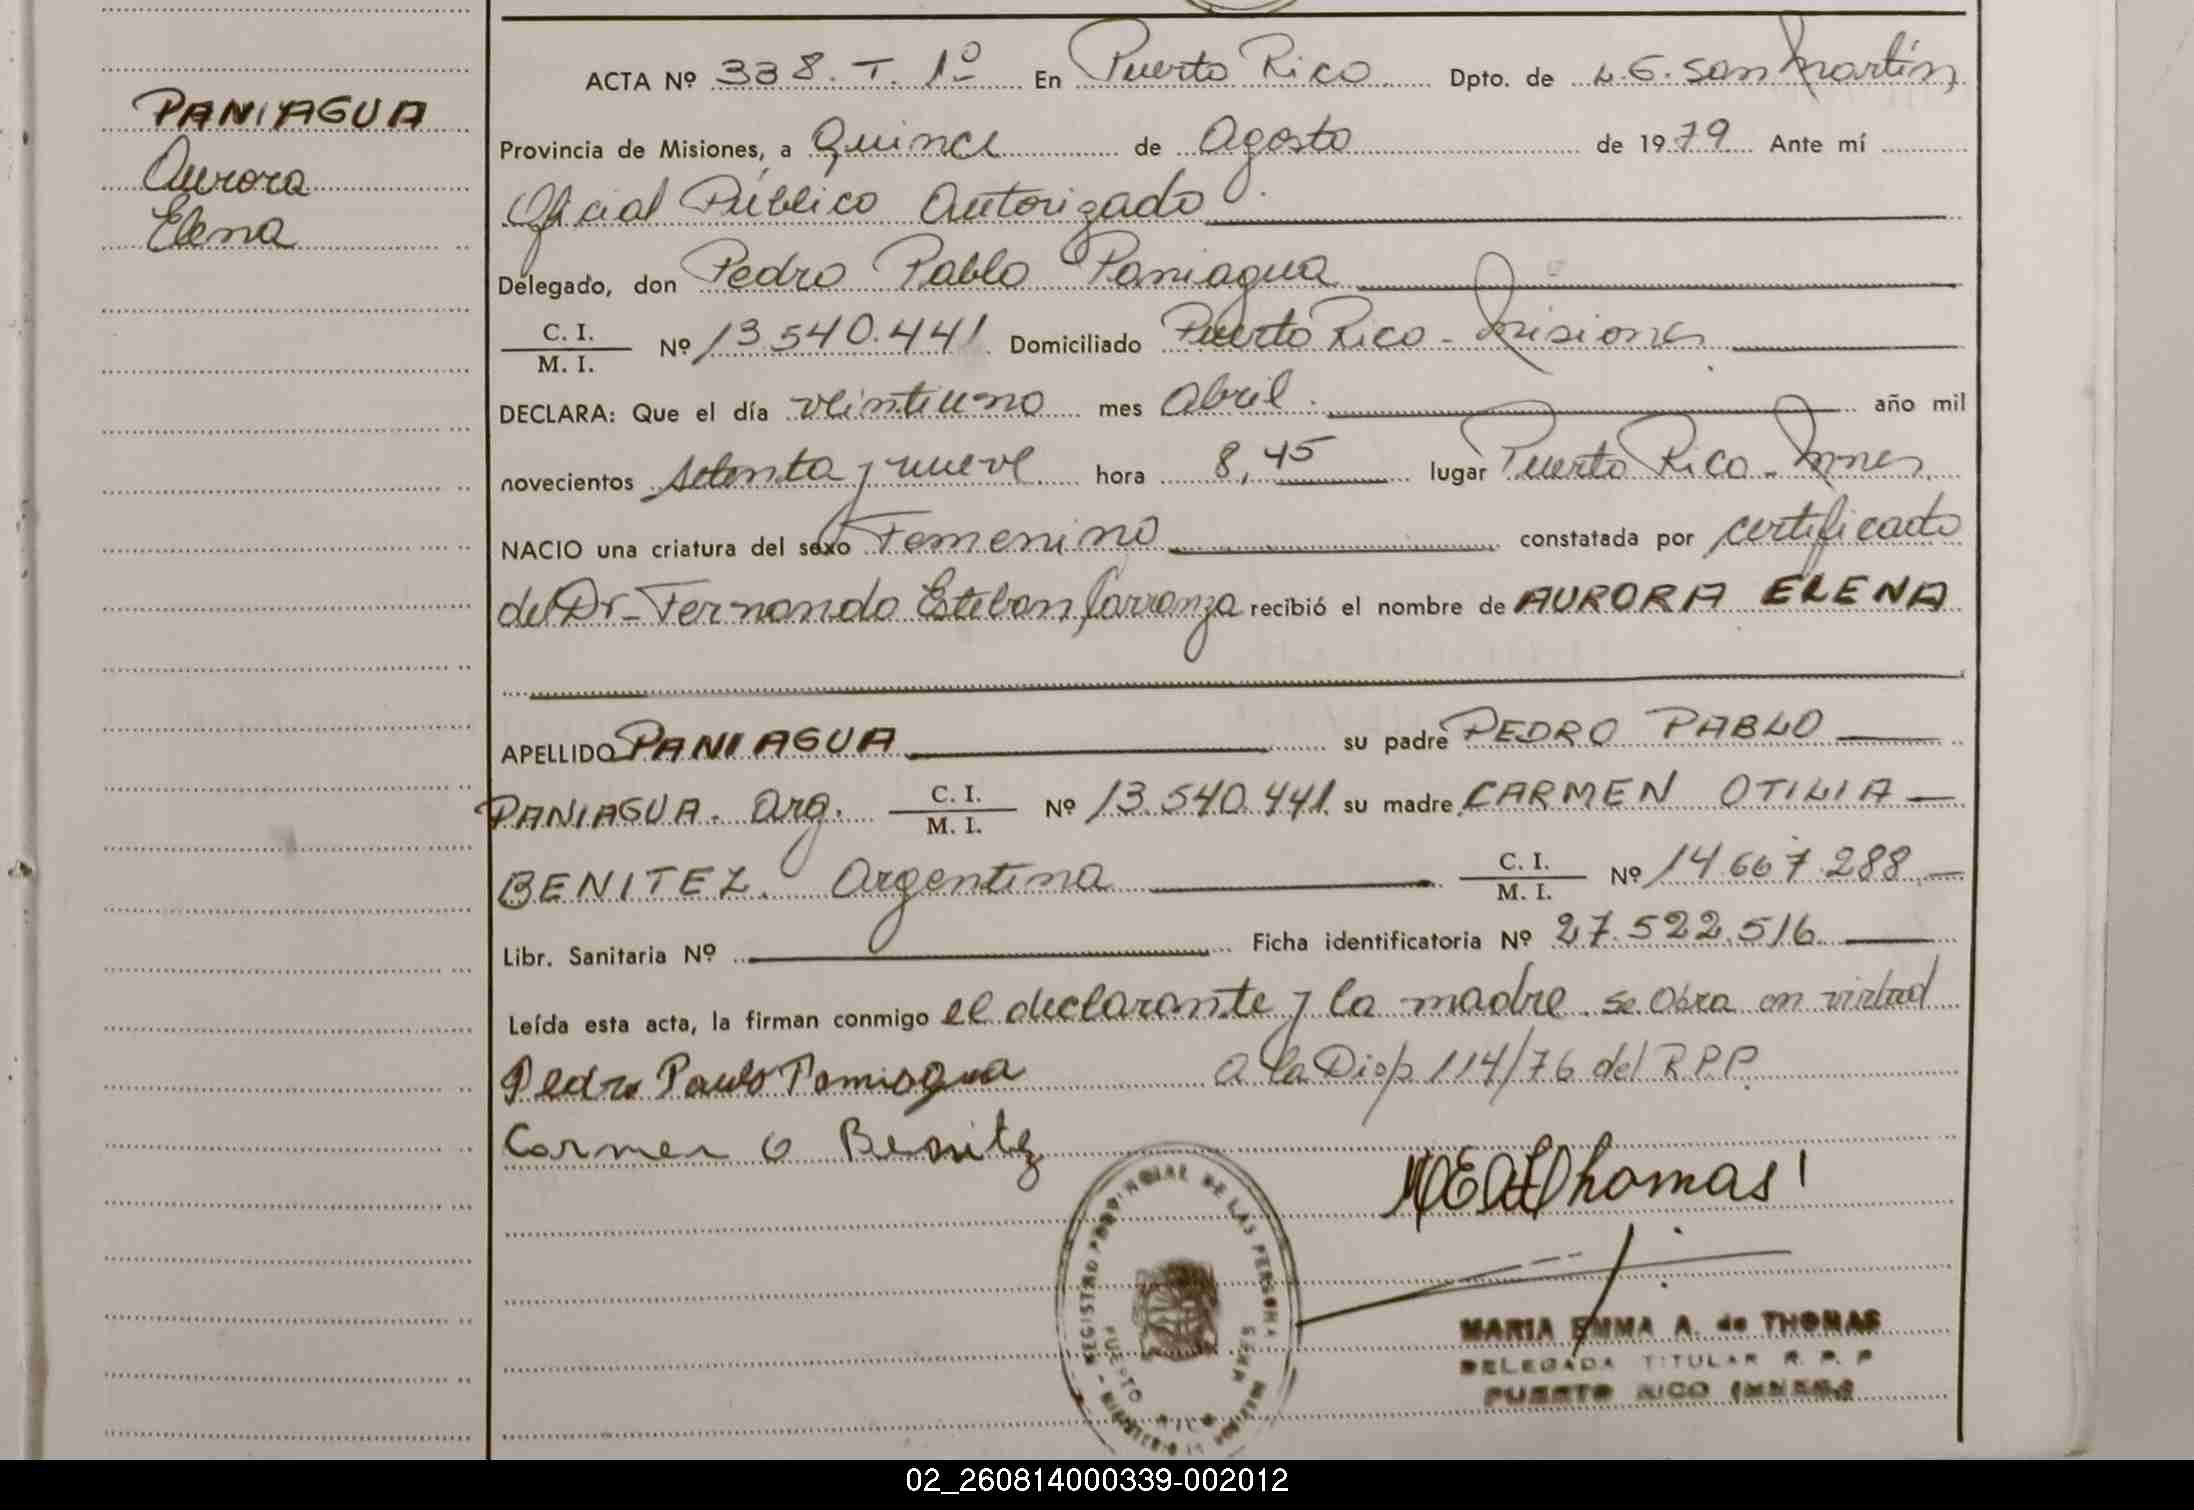 PANIAGUA
Aurora
Elena
ACTA Nº 338. T. 1º En Puerto Rico Dpto. de L.G. San Martín,
Provincia de Misiones, a Quince de Agosto de 1979. Ante mí
Oficial Público Autorizado
Delegado, don Pedro Pablo Paniagua
C. I. / M. I. Nº 13.540.441 Domiciliado Puerto Rico - Misiones
DECLARA: Que el día veintiuno mes Abril. año mil
novecientos setenta y nueve hora 8,45 lugar Puerto Rico - Mnes.
NACIO una criatura del sexo Femenino constatada por certificado
del Dr. Fernando Esteban Carranza recibió el nombre de AURORA ELENA
APELLIDO PANIAGUA su padre PEDRO PABLO
PANIAGUA. Arg. C. I. / M. I. Nº 13.540.441 su madre CARMEN OTILIA
BENITEZ. Argentina C. I. / M. I. Nº 14.667.288
Libr. Sanitaria Nº Ficha identificatoria Nº 27.522.516
Leída esta acta, la firman conmigo el declarante y la madre. se Obra en virtud
Pedro Pablo Paniagua a la Disp 114/76 del R.P.P.
Carmen O Benitez
MEAdThomas
REGISTRO PROVINCIAL DE LAS PERSONAS
PUERTO RICO
MARIA EMMA A. de THOMAS
DELEGADA TITULAR R. P. P
PUERTO RICO (MNES.)
02_260814000339-002012